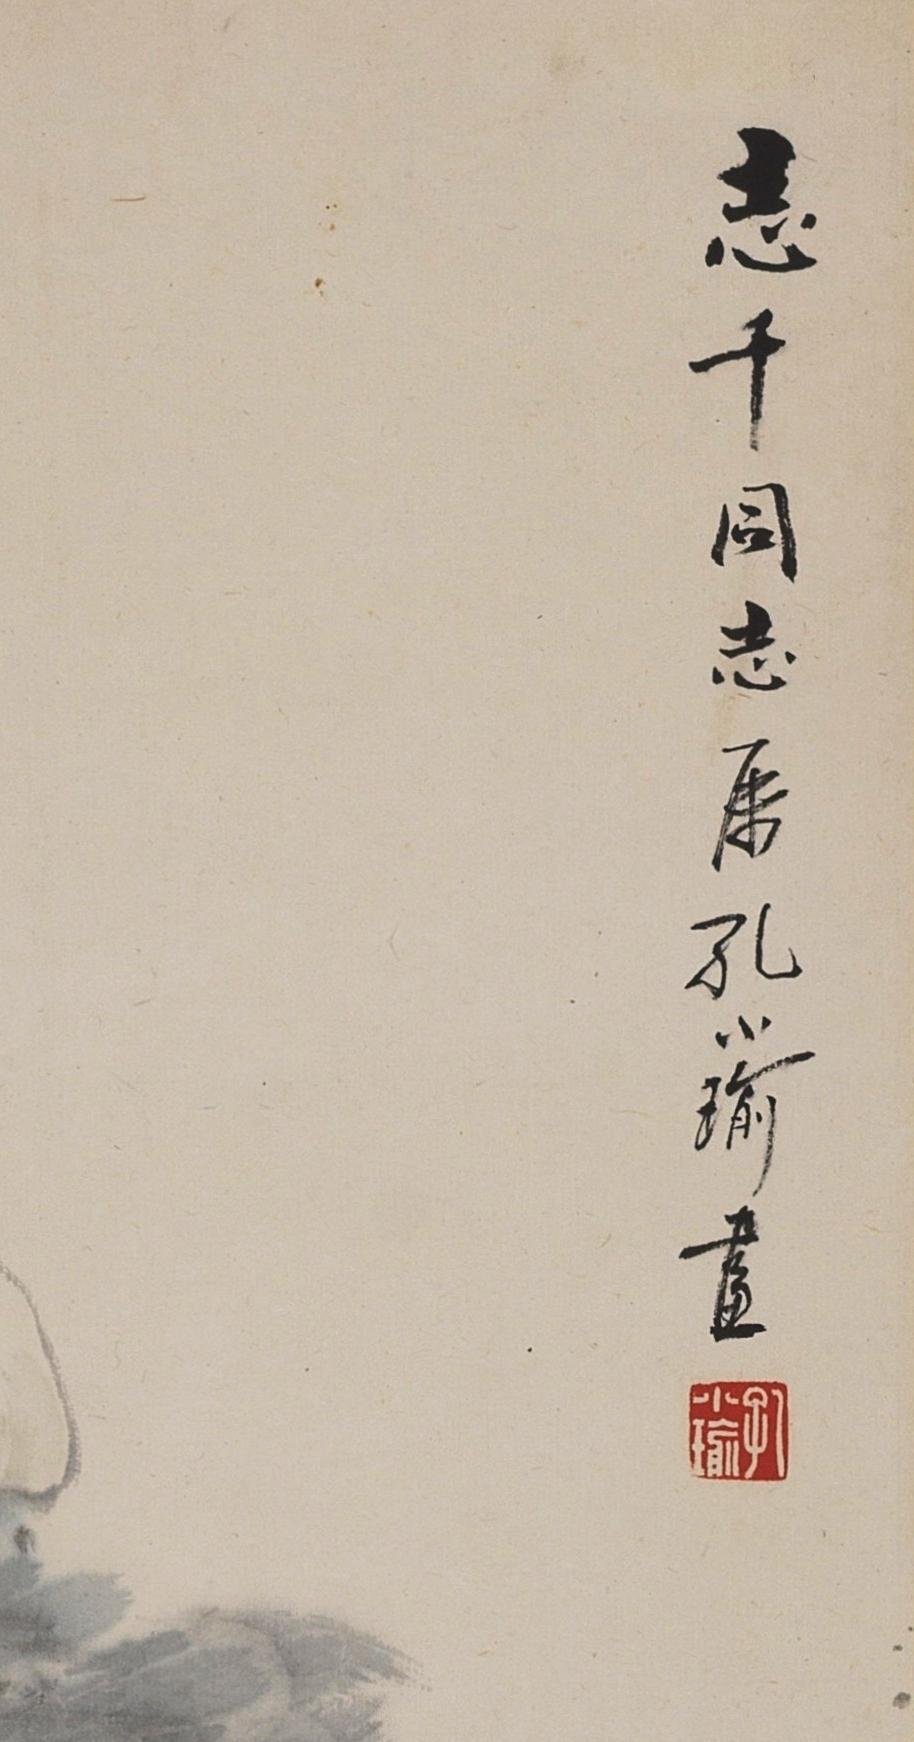 志千同志属孔小瑜畫
孔小瑜